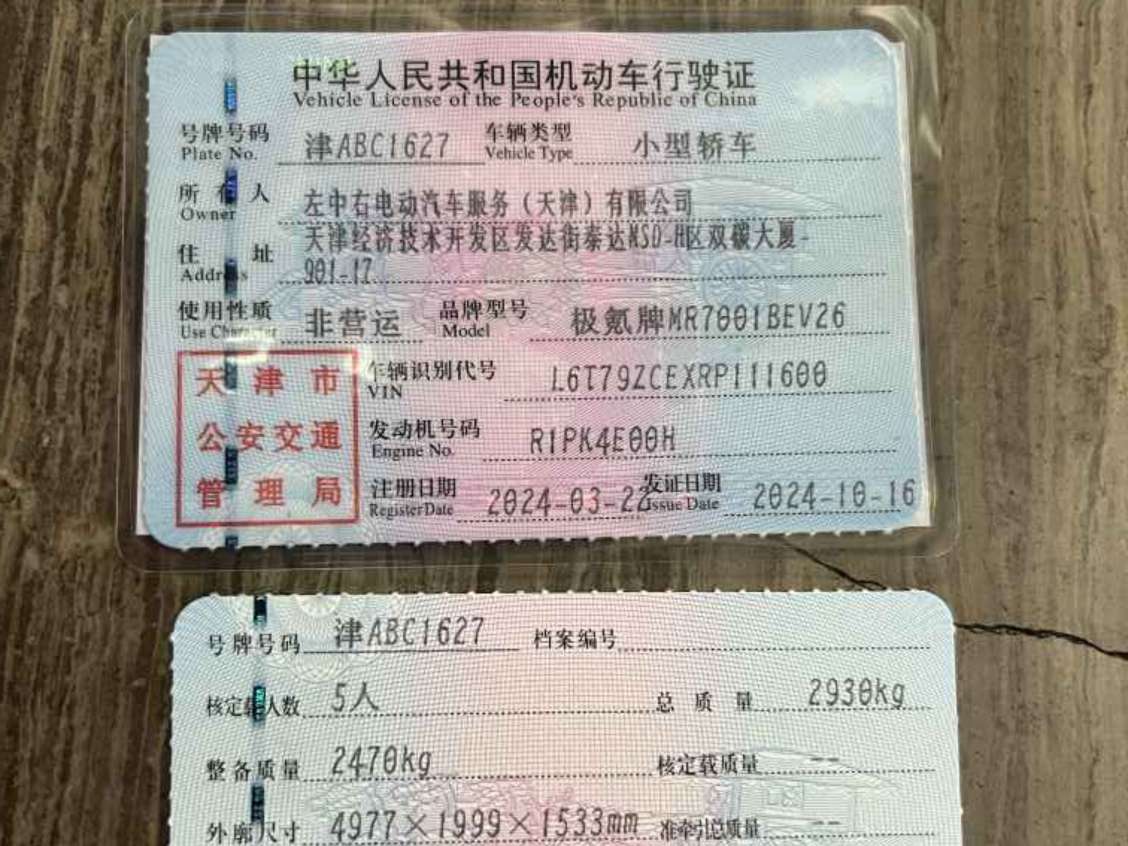 中华人民共和国机动车行驶证
Vehicle License of the People's Republic of China
号牌号码 津ABC1627 车辆类型 小型轿车
Plate No. Vehicle Type
所有人 左中右电动汽车服务（天津）有限公司
Owner
住址 天津经济技术开发区发达街泰达MSD-H区双碳大厦-
Address 901-17
使用性质 非营运 品牌型号 极氪牌MR7001BEV26
Use Character Model
天津市 车辆识别代号 L6T79ZCEXRP111600
VIN
公安交通 发动机号码 R1PK4E00H
Engine No.
管理局 注册日期 2024-03-22 发证日期 2024-10-16
Register Date Issue Date
号牌号码 津ABC1627 档案编号
核定载人数 5人 总质量 2930kg
整备质量 2470kg 核定载质量 --
外廓尺寸 4977×1999×1533mm 准牵引总质量 --